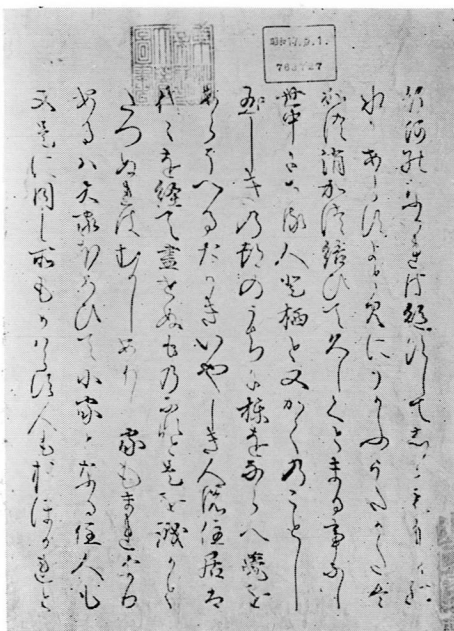 行河のなかれは絶すしてしかももとの
水にあらすよとみにうかふうたかたは
かつ消かつ結ひて久しくとまる事なし
世中にある人と栖と又かくのことし
玉しきの都のうちに棟をならへ甍を
あらそへるたかきいやしき人の住居は
代々を経て盡せぬものなれと是を誠かと
たつぬれはむかしありし家もまれなり
あるは大家ほろひて小家となる住人も
又是に同し所もかはらす人もおほかれと